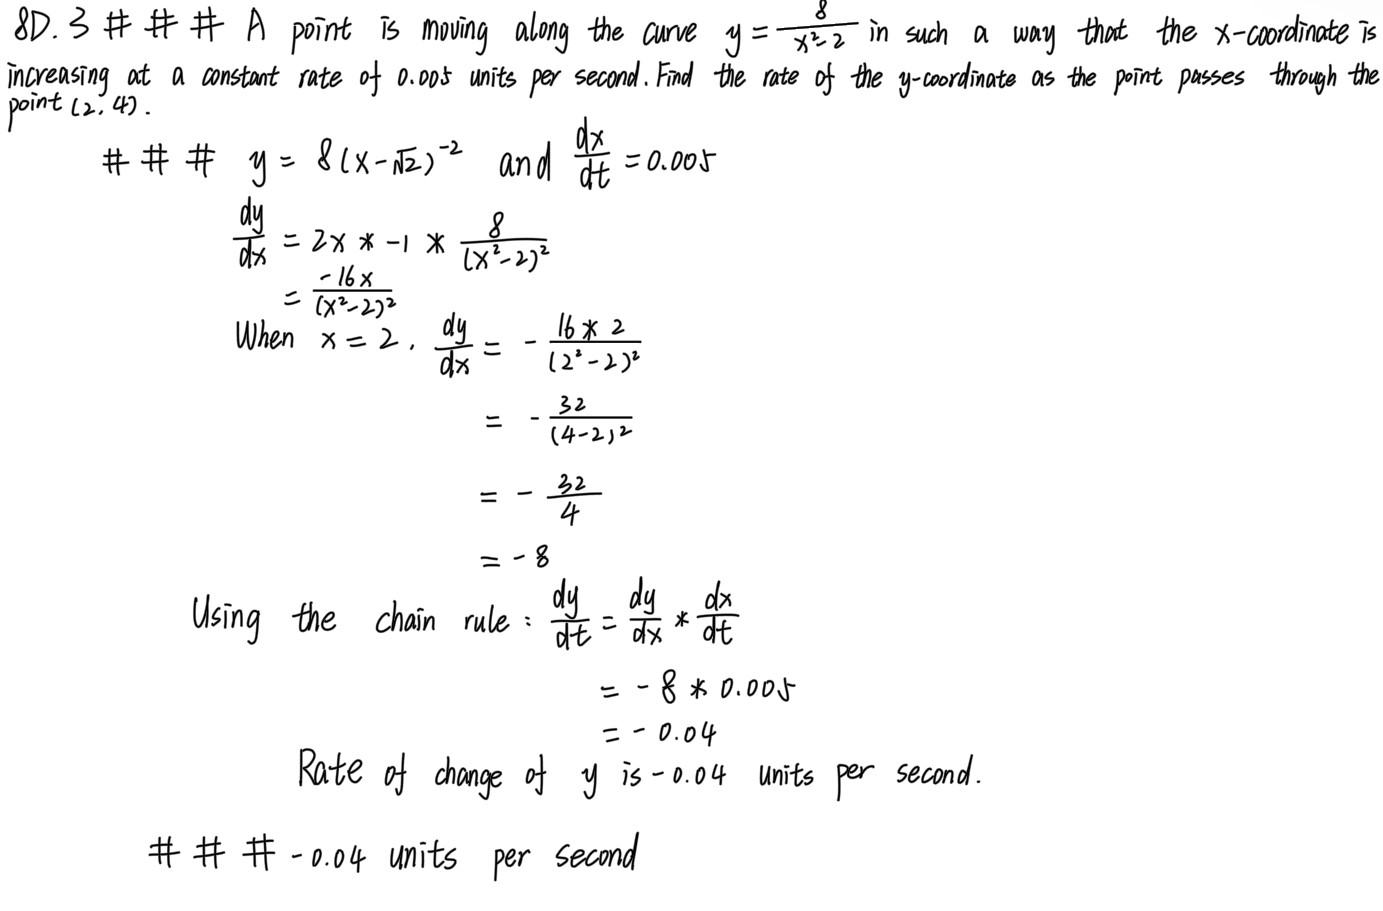 8D.3 # # # A point is moving along the curve y = 8/(x²-2) in such a way that the x-coordinate is
increasing at a constant rate of 0.005 units per second. Find the rate of the y-coordinate as the point passes through the
point (2, 4).
# # # y = 8(x-√2)⁻² and dx/dt = 0.005
dy/dx = 2x * -1 * 8/(x²-2)²
= -16x/(x²-2)²
When x = 2, dy/dx = - 16*2/(2²-2)²
= - 32/(4-2)²
= - 32/4
= -8
Using the chain rule: dy/dt = dy/dx * dx/dt
= -8 * 0.005
= -0.04
Rate of change of y is -0.04 units per second.
# # # -0.04 units per second